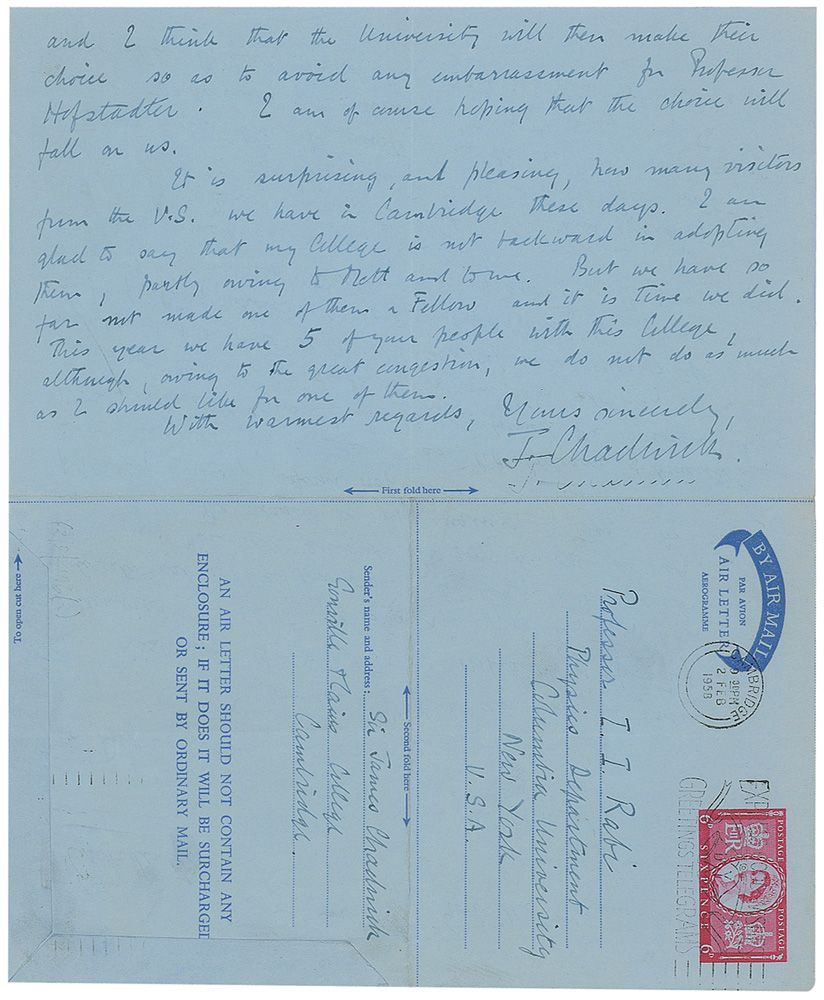 and I think that the University will then make their
choice so as to avoid any embarrassment for Professor
Hofstadter. I am of course hoping that the choice will
fall on us.
It is surprising, and pleasing, how many visitors
from the U.S. we have in Cambridge these days. I am
glad to say that my College is not backward in adopting
them, partly owing to Mott and to me. But we have so
far not made one of them a Fellow and it is time we did.
This year we have 5 of your people with this College,
although, owing to the great congestion, we do not do as much
as I should like for one of them.
With warmest regards, Yours sincerely,
J. Chadwick.
First fold here
BY AIR MAIL
PAR AVION
AIR LETTER
AEROGRAMME
CAMBRIDGE
9 30PM
2 FEB
1958
GREETINGS TELEGRAMS
POSTAGE POSTAGE
6D SIXPENCE 6D
Professor I. I. Rabi
Physics Department
Columbia University
New York
U.S.A.
Second fold here
Sender's name and address:
Sir James Chadwick
Gonville & Caius College
Cambridge.
AN AIR LETTER SHOULD NOT CONTAIN ANY
ENCLOSURE; IF IT DOES IT WILL BE SURCHARGED
OR SENT BY ORDINARY MAIL.
To open cut here